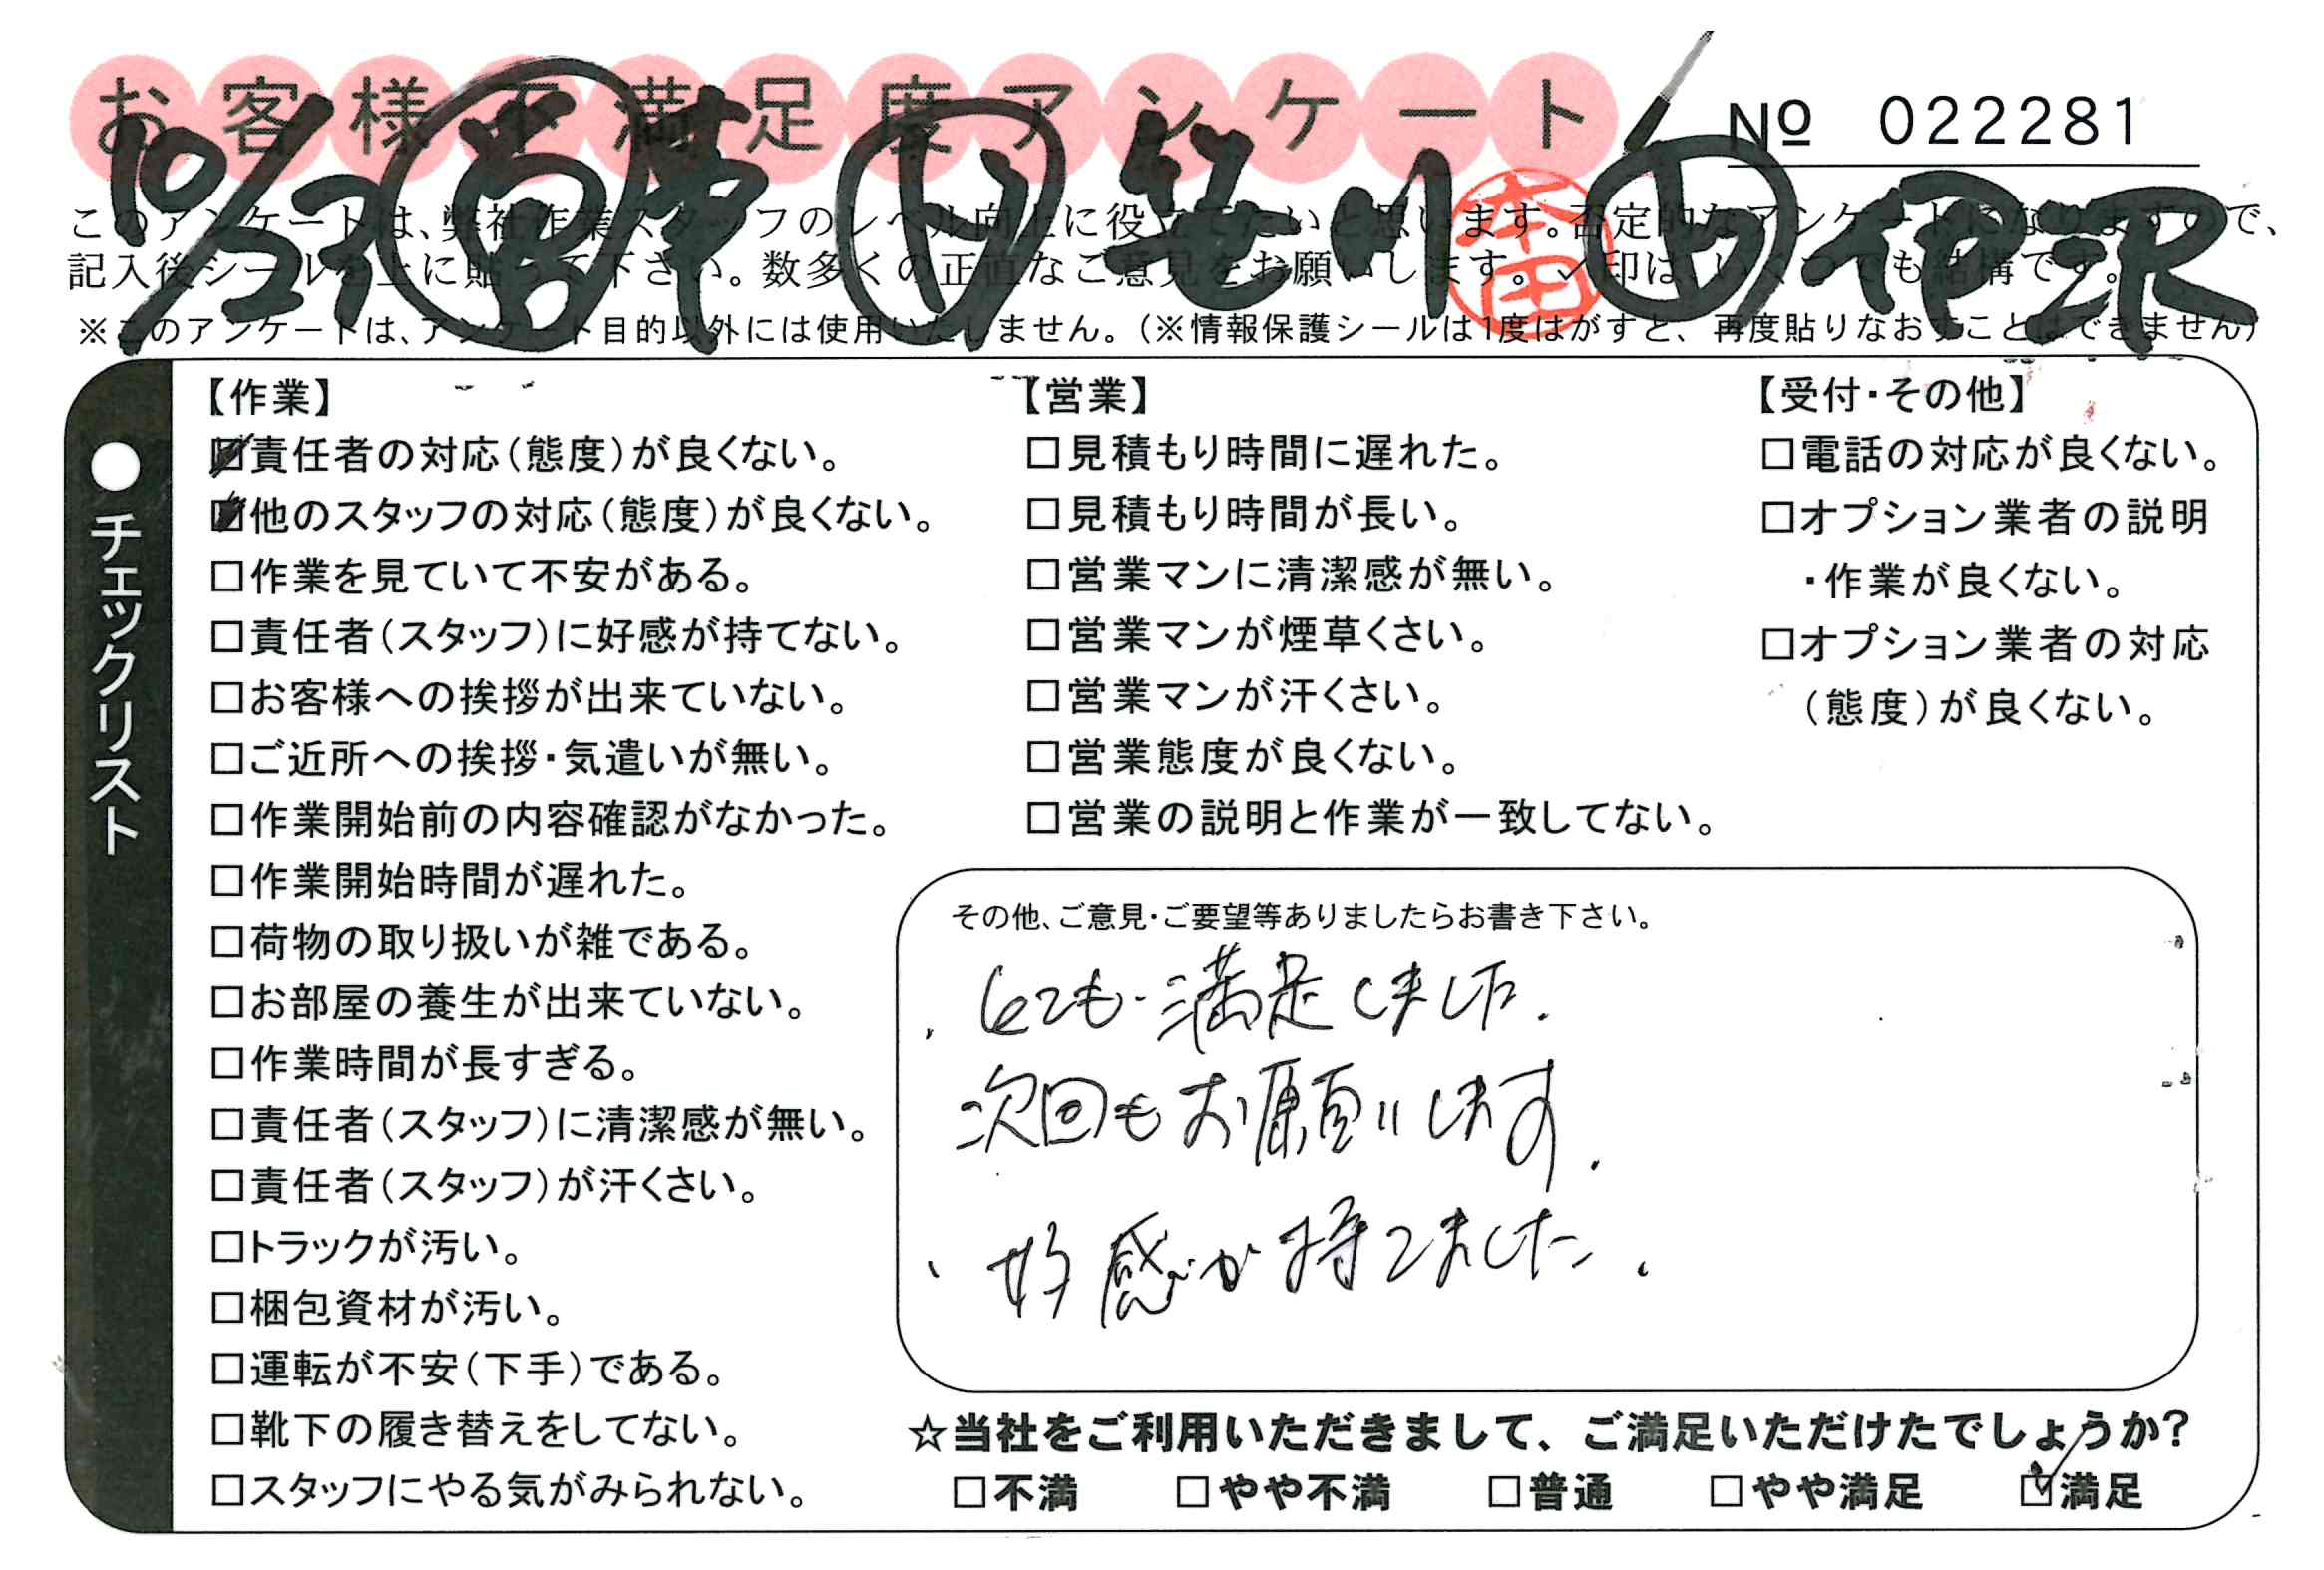 お客様不満足度アンケート
№ 022281
10/27 営 東 リ 笹川 本田 ト 伊沢
このアンケートは、弊社作業スタッフのレベル向上に役立てたいと思います。否定的なアンケートになりますので、
記入後シールを上に貼って下さい。数多くの正直なご意見をお願いします。✓印は、いくつでも結構です。
※このアンケートは、アンケート目的以外には使用いたしません。（※情報保護シールは1度はがすと、再度貼りなおすことはできません）
●チェックリスト
【作業】
☑責任者の対応（態度）が良くない。
☑他のスタッフの対応（態度）が良くない。
□作業を見ていて不安がある。
□責任者（スタッフ）に好感が持てない。
□お客様への挨拶が出来ていない。
□ご近所への挨拶・気遣いが無い。
□作業開始前の内容確認がなかった。
□作業開始時間が遅れた。
□荷物の取り扱いが雑である。
□お部屋の養生が出来ていない。
□作業時間が長すぎる。
□責任者（スタッフ）に清潔感が無い。
□責任者（スタッフ）が汗くさい。
□トラックが汚い。
□梱包資材が汚い。
□運転が不安（下手）である。
□靴下の履き替えをしてない。
□スタッフにやる気がみられない。
【営業】
□見積もり時間に遅れた。
□見積もり時間が長い。
□営業マンに清潔感が無い。
□営業マンが煙草くさい。
□営業マンが汗くさい。
□営業態度が良くない。
□営業の説明と作業が一致してない。
【受付・その他】
□電話の対応が良くない。
□オプション業者の説明
・作業が良くない。
□オプション業者の対応
（態度）が良くない。
その他、ご意見・ご要望等ありましたらお書き下さい。
・とても満足しました。
次回もお願いします。
・好感が持てました。
☆当社をご利用いただきまして、ご満足いただけたでしょうか？
□不満 □やや不満 □普通 □やや満足 ☑満足